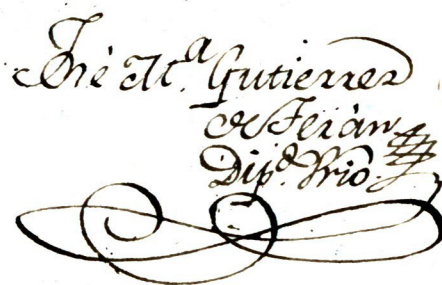 José M.ª Gutierrez
de Terán
Dip.º Srio.